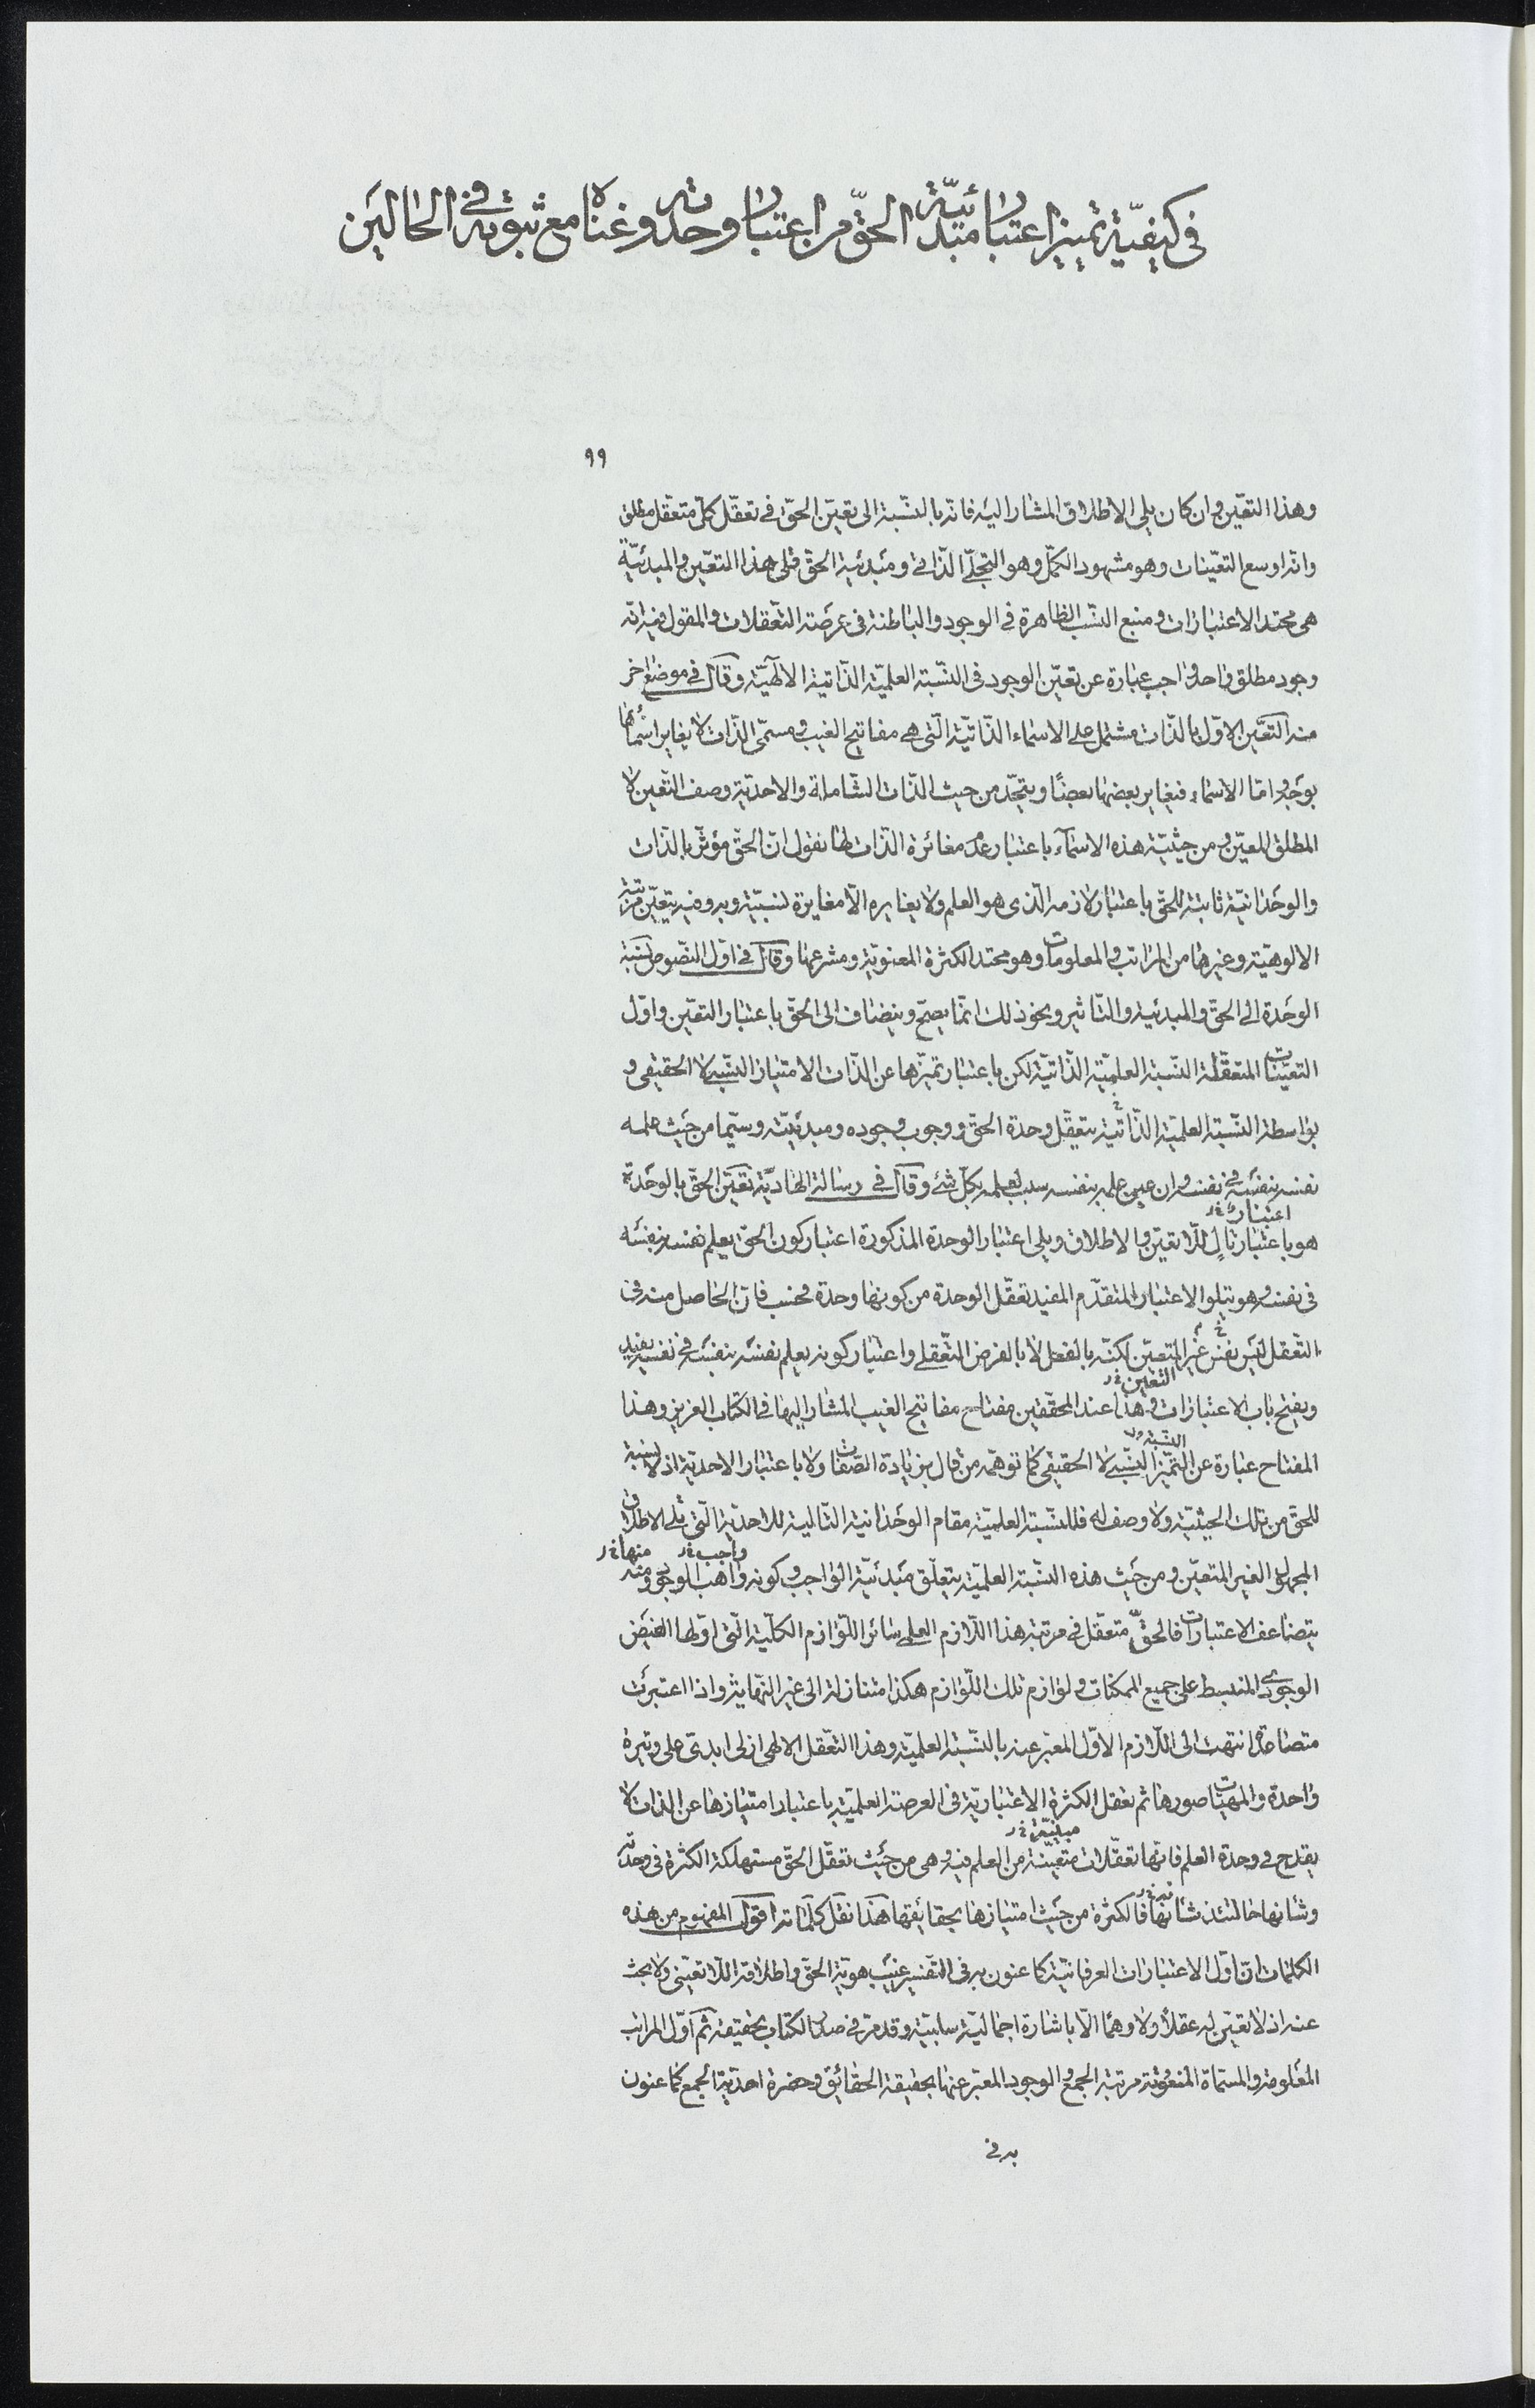 في كيفيّة تميز اعتبار مبدئيّة الحقّ من اعتبار وحدته وغناه مع ثبوته في الحالين
٩٩
وهذا التعيّن وان كان يلي الاطلاق المشار اليه فانّه بالنّسبة الى تعيّن الحقّ في تعقّل كلّ متعقّل مطلق
وانّه اوسع التعيّنات وهو مشهود الكمّل وهو التجلّي الذّاتي ومبدئية الحقّ تلي هذا التعيّن والمبدئيّة
هي محتد الاعتبارات ومنبع النسب الظاهرة في الوجود والباطنة في عرصة التّعقلات والمقول فيه انّه
وجود مطلق واحد واجب عبارة عن تعيّن الوجود في النّسبة العلميّة الذّاتية الالهيّة وقال في موضع اخر
منه التعيّن الاوّل بالذّات مشتمل على الاسماء الذّاتيّة الّتي هي مفاتيح الغيب ومسمّى الذّات لا يغاير اسمائها
بوجه واما الاسماء فيغاير بعضها بعضًا ويتّحد من حيث الذّات الشّاملة والاحديّة وصف التّعين لا
المطلق المعيّن ومن حيثيّة هذه الاسماء باعتبار عدم مغائرة الذّات لها نقول انّ الحقّ مؤثّر بالذّات
والوحدانيّة ثابتة للحقّ باعتبار لازمه الّذي هو العلم ولا يغايره الّا مغايرة نسبيّة وبه وفيه يتعيّن مرتبة
الالوهيّة وغيرها من المراتب والمعلومات وهو محتد الكثرة المعنويّة ومشرعها وقال في اوّل النّصوص نسبة
الوحدة الى الحقّ والمبدئية والتّاثير ونحو ذلك انّما يصحّ وينضاف الى الحقّ باعتبار التعيّن واوّل
التعيّنات المتعقّلة النّسبة العلميّة الذّاتيّة لكن باعتبار تميّزها عن الذّات الامتياز النّسبي لا الحقيقي و
بواسطة النّسبة العلميّة الذّاتيّة يتعقّل وحدة الحق ووجوب وجوده ومبدئيته وسيّما من حيث علمه
نفسه بنفسه في نفسه وان عين علمه بنفسه سبب لعلمه بكلّ شئ وقال في رسالة الهاديّة تعيّن الحق بالوحدة
اعتبار خ ر
هو باعتبار تال للّا تعيّن والاطلاق ويلي اعتبار الوحدة المذكورة اعتبار كون الحق يعلم نفسه بنفسه
في نفسه وهو يتلو الاعتبار المتقدّم المفيد تعقّل الوحدة من كونها وحدة فحسب فانّ الحاصل منه في
التّعقل ليس نفس غير المتعين لكنّه بالفعل لا بالفرض التّعقلي واعتبار كونه يعلم نفسه بنفسه في نفسه يفيد
التعين خ ر
ويفتح باب الاعتبارات وهذا عند المحقّقين مفتاح مفاتيح الغيب المشار اليها في الكتاب العزيز وهذا
النسبة
المفتاح عبارة عن التّميّز النّسبي لا الحقيقي كما توهّمه من قال بزيادة الصّفات ولا باعتبار الاحدية اذ لا نسبة
للحق من تلك الحيثيّة ولا وصف له فللنّسبة العلميّة مقام الوحدانية التّالية للاحديّة الّتي تلي الاطلاق
واجب خ ر منها خ ر
المجهول الغير المتعيّن ومن حيث هذه النّسبة العلميّة يتعلّق مبدئيّة الواجب وكونه واهب الوجود ومنه
يتضاعف الاعتبارات فالحقّ متعقّل في مرتبة هذا اللّازم العلمي سائر اللّوازم الكلّية الّتي اوّلها الفيض
الوجودي المنبسط على جميع الممكنات ولوازم تلك اللّوازم هكذا متنازلة الى غير النّهاية واذا اعتبرت
متصاعدة انتهت الى اللّازم الاوّل المعبّر عنه بالنّسبة العلميّة وهذا التعقّل الالهي ازلي ابدي على وتيرة
واحدة والمهيّات صورها ثم تعقل الكثرة الاعتباريّة في العرصة العلميّة باعتبار امتيازها عن الذات لا
يقدح في وحدة العلم فانّها تعقّلات متعيّنة من العلم فيه وهي من حيث تعقّل الحقّ مستهلكة الكثرة في وحدته
وشأنها حالتئذ شانها فالكثرة من حيث امتيازها بحقائقها هذا نقل كلماته اقول المفهوم من هذه
الكلمات انّ اوّل الاعتبارات العرفانيّة كما عنون به في التّفسير غيب هويّة الحق واطلاقه اللّا تعيّني ولا بحث
عنه اذ لا تعيّن له عقلًا ولا وهمًا الّا باشارة اجماليّة سلبيّة وقد مرّ في صدر الكتاب تحقيقه ثمّ اوّل المراتب
المعلومة والمسمّاة المنعوتة مرتبة الجمع والوجود المعبّر عنها بحقيقة الحقائق وحضرة احديّة الجمع كما عنون
به في